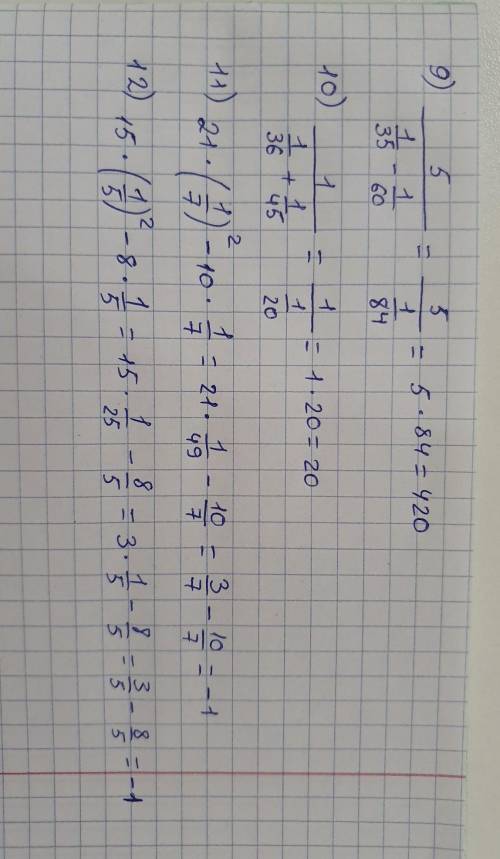 9) 5/(1/35 - 1/60) = 5/(1/84) = 5 · 84 = 420
10) 1/(1/36 + 1/45) = 1/(1/20) = 1 · 20 = 20
11) 21 · (1/7)² - 10 · 1/7 = 21 · 1/49 - 10/7 = 3/7 - 10/7 = -1
12) 15 · (1/5)² - 8 · 1/5 = 15 · 1/25 - 8/5 = 3 · 1/5 - 8/5 = 3/5 - 8/5 = -1